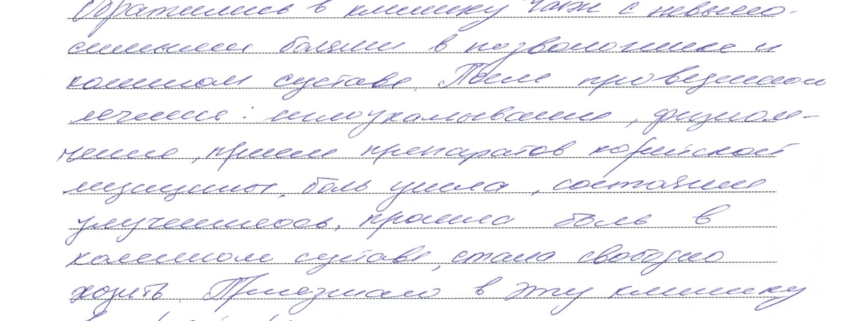 Обратились в клинику Чатж с невыно-
симыми болями в позвоночнике и
коленном суставе. После проведенного
лечения: иглоукалывание, физиоле-
чение, прием препаратов корейской
медицины, боль ушла, состояние
улучшилось, прошла боль в
коленном суставе, стала свободно
ходить. Приезжаю в эту клинику